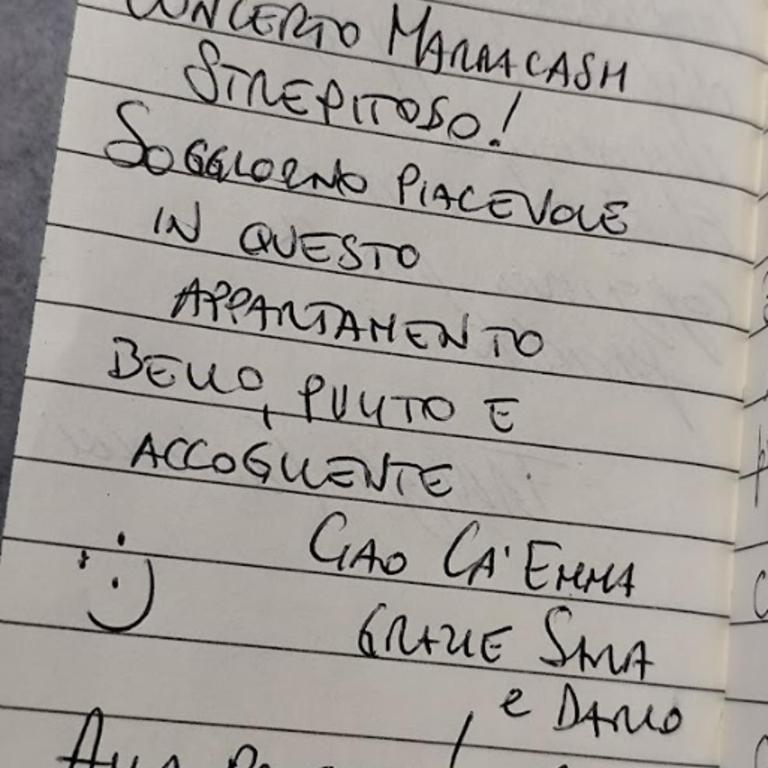 CONCERTO MARRACASH
STREPITOSO!
SOGGIORNO PIACEVOLE
IN QUESTO
APPARTAMENTO
BELLO, PULITO E
ACCOGLIENTE
CIAO CA' EMMA
GRAZIE SARA
e DARIO
ALLA